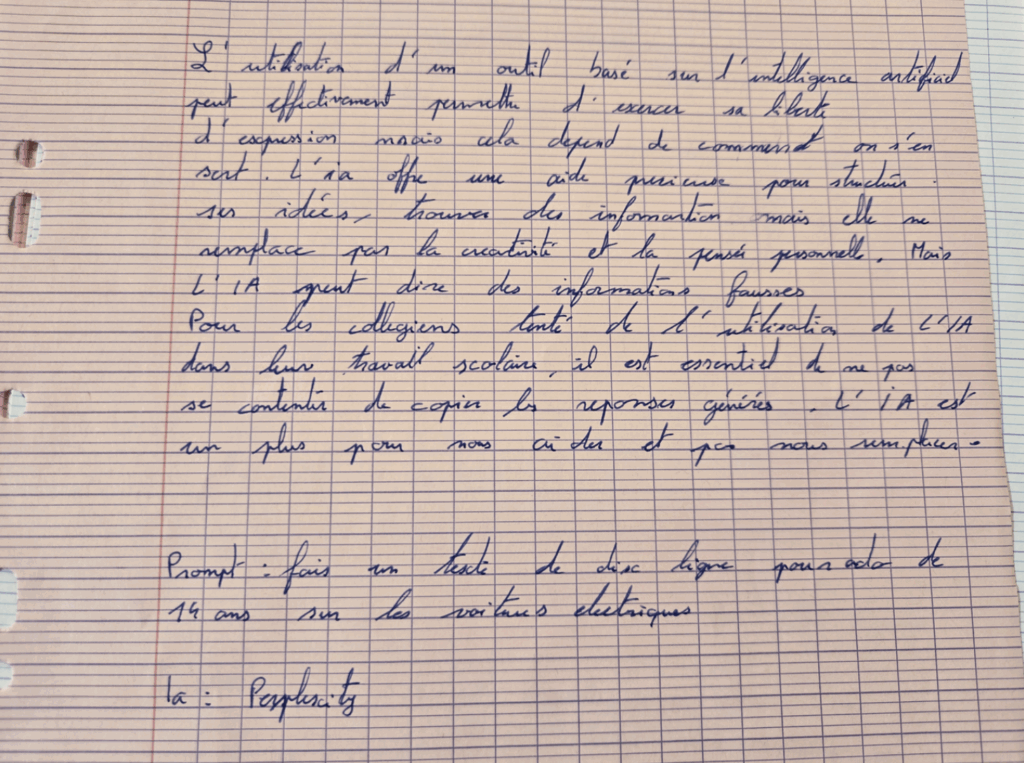 L'utilisation d'un outil basé sur l'intelligence artificiel
peut effectivement permettre d'exercer sa liberte
d'expression mais cela depend de comment on s'en
sert. L'ia offre une aide precieuse pour structurer
ses idées, trouver des information mais elle ne
remplace pas la creativité et la pensée personnelle. Mais
L'IA peut dire des informations fausses
Pour les collegiens tenté de l'utilisation de L'IA
dans leur travail scolaire, il est essentiel de ne pas
se contenter de copier les reponses générés. L'iA est
un plus pour nous aider et pas nous remplacer.
Prompt : fais un texte de dix ligne pour ado de
14 ans sur les voitures electriques
Ia : Perplexity